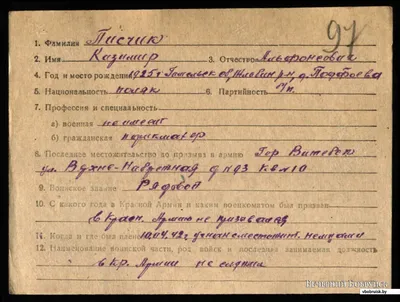 97
1. Фамилия Писчик
2. Имя Казимир 3. Отчество Альфонсович
4. Год и место рождения 1925 г Гомельск обл, Жлобин р-н, д.
5. Национальность поляк 6. Партийность б/п.
7. Профессия и специальность
а) военная не имеет
б) гражданская парикмахер
8. Последнее местожительство до призыва в армию Гор Витебск
ул. д №3 кв №10
9. Воинское звание Рядовой
10. С какого года в Красной Армии и каким военкоматом был призван
в Красн. Армию не призывался
11. Когда и где взят в плен 10.04.42 г
12. Наименование воинской части, род войск и последняя занимаемая должность
в Кр. Армии не служил
vitebsk.by